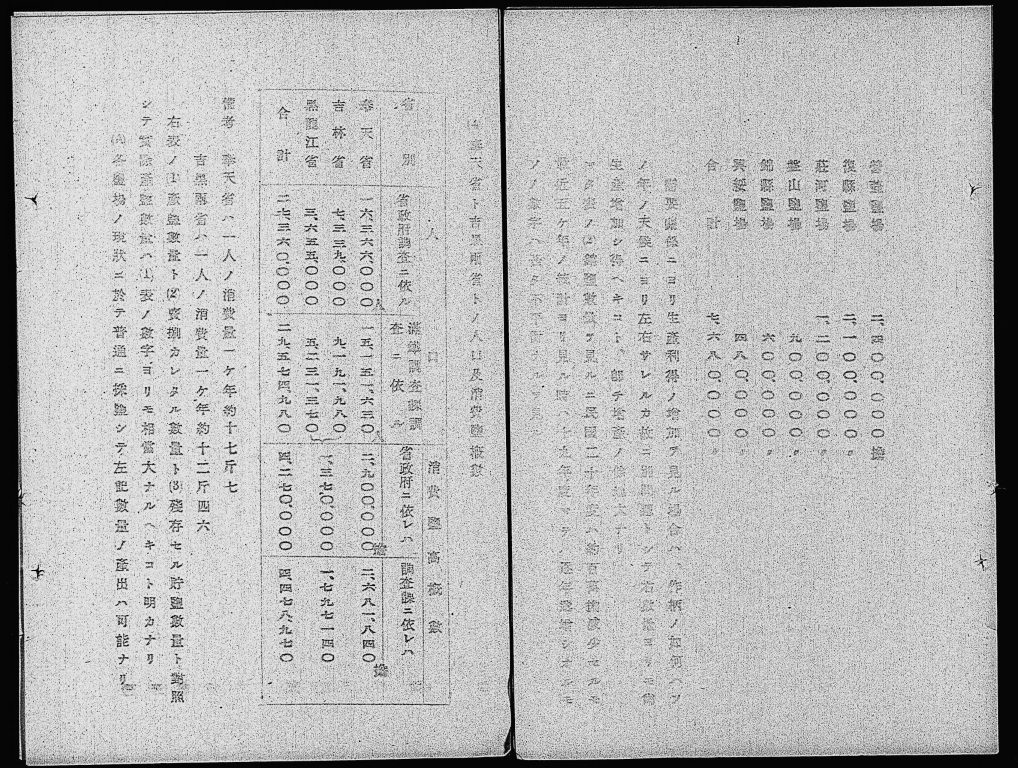 營蓋鹽場　二、四〇〇、〇〇〇擔
復縣鹽場　二、一〇〇、〇〇〇〃
莊河鹽場　一、二〇〇、〇〇〇〃
盤山鹽場　九〇〇、〇〇〇〃
錦縣鹽場　六〇〇、〇〇〇〃
興綏鹽場　四八〇、〇〇〇〃
合計　七、六八〇、〇〇〇〃
需要關係ニヨリ生產利得ノ增加ヲ見ル場合ハ、作柄ノ如何ハソ
ノ年ノ天候ニヨリ左右サレルカ故ニ別問題トシテ右數量ヨリモ尙
生產增加シ得ヘキコト
マタ表ノ(2)鹽數量ヲ見ルニ民國二十年度ハ約百萬擔減少セルモ
最近五ケ年ノ統計ヨリ見ル時ハ十九年度マテノ逐年
ソノ數字ハ
(4)奉天省ト吉黑兩省トノ人口及消費鹽概數
省別　人口　消費鹽高概數
省政府調査ニ依ル　滿鐵調査課調査ニ依ル　省政府ニ依レハ　調査課ニ依レハ
奉天省　一六、三六六、〇〇〇人　一五、一五一、六三〇人　二、九〇〇、〇〇〇擔　二、六八一、八四〇擔
吉林省　七、三三九、〇〇〇　九、一九一、九八〇　一、三七〇、〇〇〇　一、七九七一四〇
黑龍江省　三、六五五、〇〇〇　五、二三一、三七〇
合計　二七、三六〇、〇〇〇　二九、五七四、九八〇　四、二七〇、〇〇〇　四、四七八、九七〇
備考　奉天省ハ一人ノ消費量一ケ年約十七斤七
吉黑兩省ハ一人ノ消費量一ケ年約十二斤四六
右表ノ(1)產鹽數量ト(2)賣捌カレタル數量ト(3)殘存セル貯鹽數量ト對照
シテ實際產鹽數量ハ(1)表ノ數字ヨリモ相當大ナルヘキコト明カナリ
(A)各鹽場ノ現狀ニ於テ普通ニ採鹽シテ左記數量ノ產出ハ可能ナリ